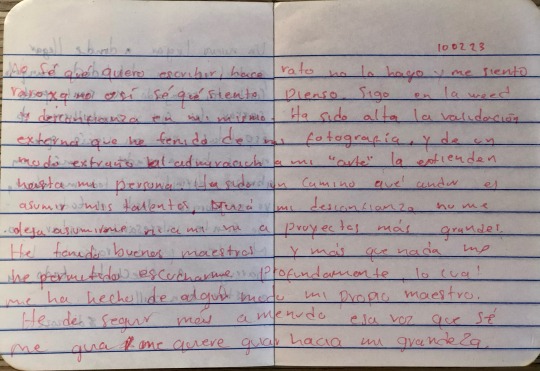 100223
No sé que quiero escribir, hace rato no lo hago y me siento
raro xq no sí sé qué siento pienso. Sigo en la weed
desconfianza en mi mismo. Ha sido alta la validación
externa que he tenido de mi fotografía, y de un
modo extraño la admiración a mi "arte" la extienden
hasta mi persona. Ha sido un camino que andar el
asumir mis talentos, quizá mi desconfianza no me
deja asumirme ni a mi ni a proyectos más grandes.
He tenido buenos maestros y más que nada me
he permitido escucharme profundamente, lo cual
me ha hecho de algún modo mi propio maestro.
He de seguir más a menudo esa voz que sé
me guia y me quiere guiar hacia mi grandeza.